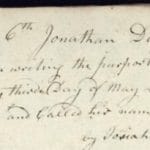 6th Jonathan D
writing the purpose
third Day of May
and Called his nam
by Josiah